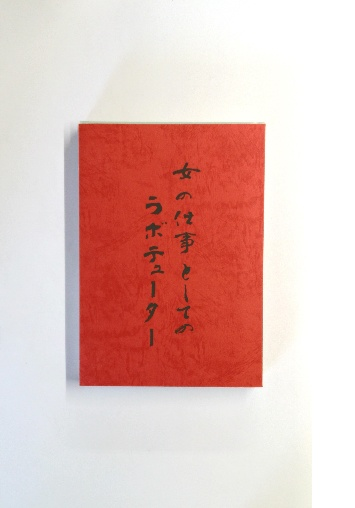 女の仕事としての
ラボテューター